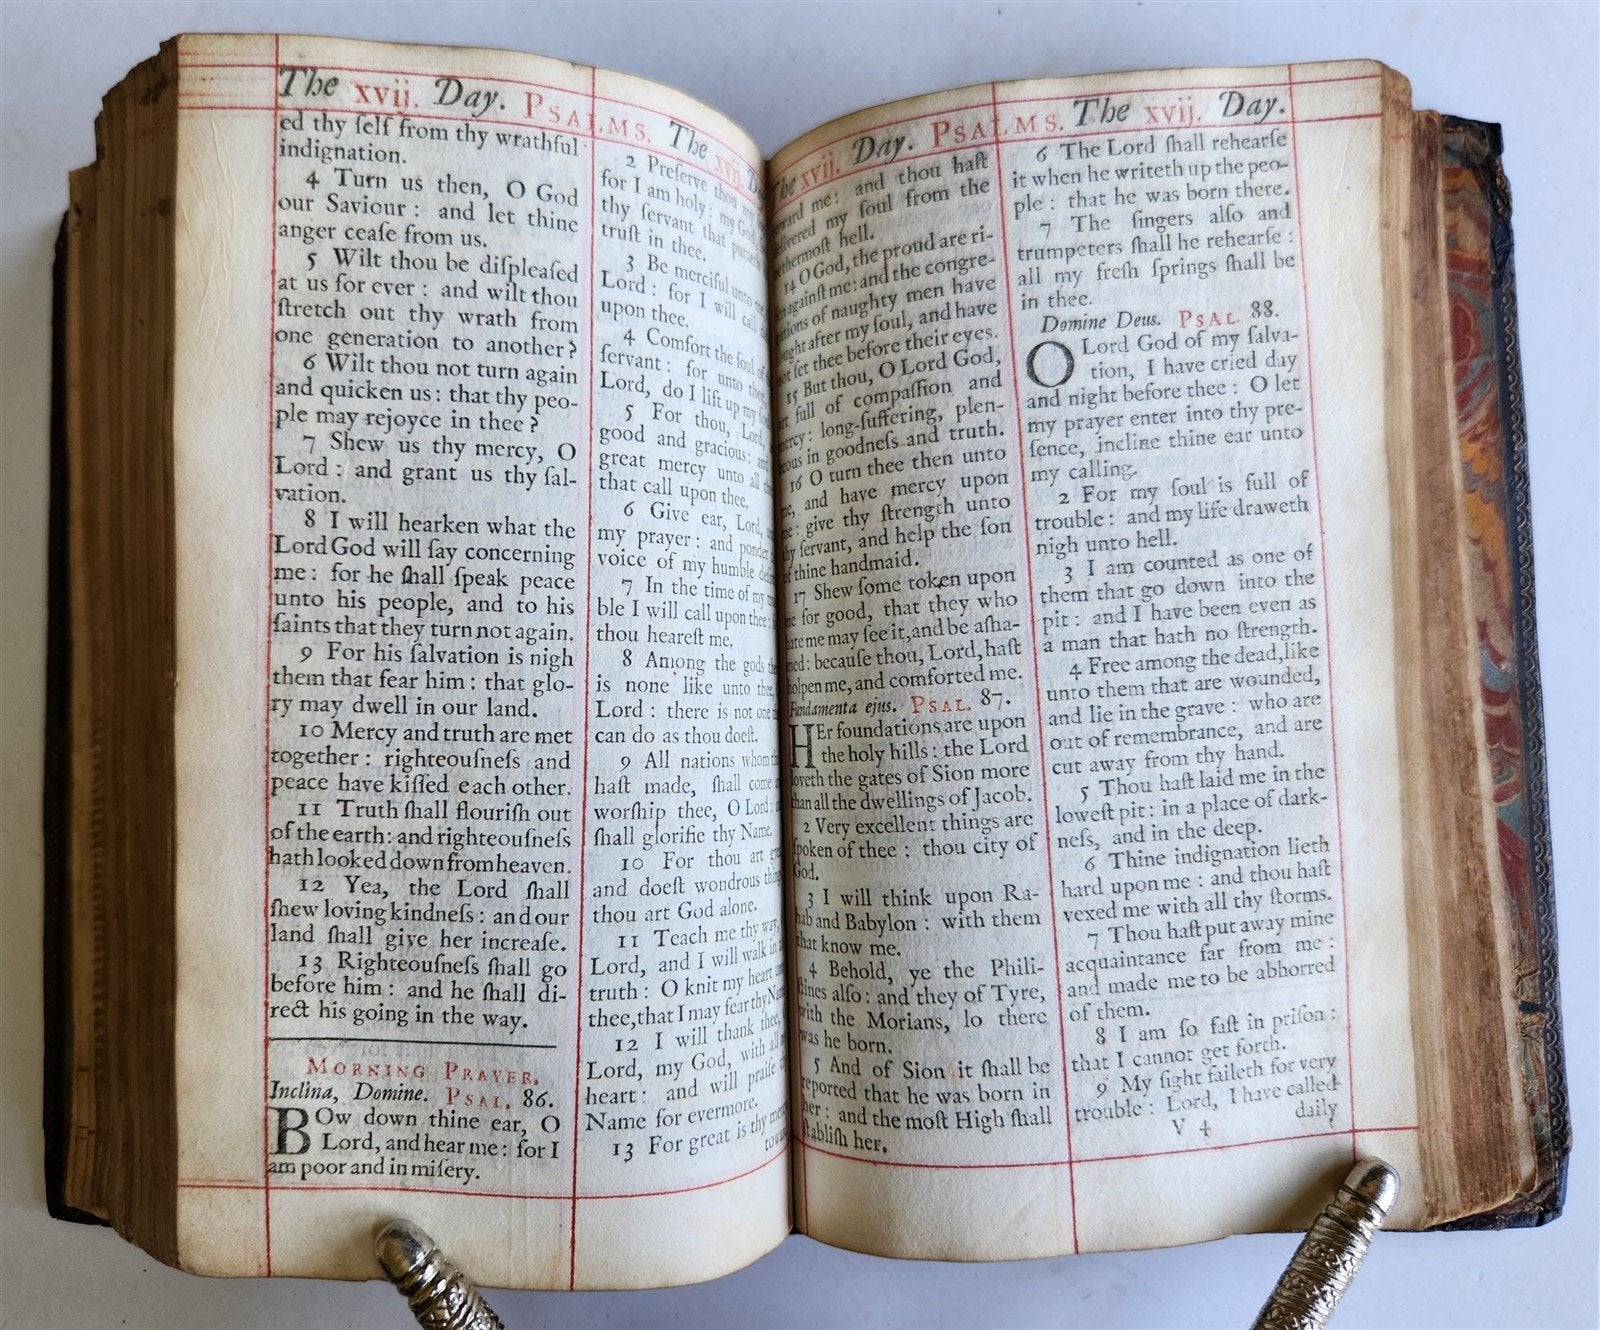 The xvij. Day. PSALMS. The xvij.
ed thy ſelf from thy wrathful
indignation.
4 Turn us then, O God
our Saviour: and let thine
anger ceaſe from us.
5 Wilt thou be diſpleaſed
at us for ever: and wilt thou
ſtretch out thy wrath from
one generation to another?
6 Wilt thou not turn again
and quicken us: that thy peo-
ple may rejoyce in thee?
7 Shew us thy mercy, O
Lord: and grant us thy ſal-
vation.
8 I will hearken what the
Lord God will ſay concerning
me: for he ſhall ſpeak peace
unto his people, and to his
ſaints that they turn not again.
9 For his ſalvation is nigh
them that fear him: that glo-
ry may dwell in our land.
10 Mercy and truth are met
together: righteouſneſs and
peace have kiſſed each other.
11 Truth ſhall flouriſh out
of the earth: and righteouſneſs
hath looked down from heaven.
12 Yea, the Lord ſhall
ſhew loving kindneſs: and our
land ſhall give her increaſe.
13 Righteouſneſs ſhall go
before him: and he ſhall di-
rect his going in the way.
MORNING PRAYER.
Inclina, Domine. PSAL. 86.
BOw down thine ear, O
Lord, and hear me: for I
am poor and in miſery.
2 Preſerve thou my
for I am holy: my God,
thy ſervant that
truſt in thee.
3 Be merciful unto me,
Lord: for I will call
upon thee.
4 Comfort the ſoul of
ſervant: for unto thee,
Lord, do I lift up my
5 For thou, Lord,
good and gracious: and
great mercy unto all
that call upon thee.
6 Give ear, Lord,
my prayer: and ponder
voice of my humble
7 In the time of my
ble I will call upon thee:
thou heareſt me.
8 Among the gods
is none like unto thee,
Lord: there is not one
can do as thou doeſt.
9 All nations whom
haſt made, ſhall come
worſhip thee, O Lord:
ſhall glorifie thy Name.
10 For thou art
and doeſt wondrous
thou art God alone.
11 Teach me thy way,
Lord, and I will walk in
truth: O knit my heart
thee, that I may fear thy
12 I will thank thee,
Lord, my God, with all
heart: and will praiſe
Name for evermore.
13 For great is thy
xvij. Day. PSALMS. The xvij. Day.
me: and thou haſt
my ſoul from the
hell.
14 O God, the proud are ri-
againſt me: and the congre-
of naughty men have
after my ſoul, and have
not ſet thee before their eyes.
15 But thou, O Lord God,
full of compaſſion and
mercy: long-ſuffering, plen-
in goodneſs and truth.
16 O turn thee then unto
me, and have mercy upon
me: give thy ſtrength unto
thy ſervant, and help the ſon
of thine handmaid.
17 Shew ſome token upon
me for good, that they who
hate me may ſee it, and be aſha-
med: becauſe thou, Lord, haſt
holpen me, and comforted me.
Fundamenta ejus. PSAL. 87.
HEr foundations are upon
the holy hills: the Lord
loveth the gates of Sion more
than all the dwellings of Jacob.
2 Very excellent things are
ſpoken of thee: thou city of
God.
3 I will think upon Ra-
hab and Babylon: with them
that know me.
4 Behold, ye the Phili-
ſtines alſo: and they of Tyre,
with the Morians, lo there
was he born.
5 And of Sion it ſhall be
reported that he was born in
her: and the moſt High ſhall
ſtabliſh her.
6 The Lord ſhall rehearſe
it when he writeth up the peo-
ple: that he was born there.
7 The ſingers alſo and
trumpeters ſhall he rehearſe:
all my freſh ſprings ſhall be
in thee.
Domine Deus. PSAL. 88.
O Lord God of my ſalva-
tion, I have cried day
and night before thee: O let
my prayer enter into thy pre-
ſence, incline thine ear unto
my calling.
2 For my ſoul is full of
trouble: and my life draweth
nigh unto hell.
3 I am counted as one of
them that go down into the
pit: and I have been even as
a man that hath no ſtrength.
4 Free among the dead, like
unto them that are wounded,
and lie in the grave: who are
out of remembrance, and are
cut away from thy hand.
5 Thou haſt laid me in the
loweſt pit: in a place of dark-
neſs, and in the deep.
6 Thine indignation lieth
hard upon me: and thou haſt
vexed me with all thy ſtorms.
7 Thou haſt put away mine
acquaintance far from me:
and made me to be abhorred
of them.
8 I am ſo faſt in priſon:
that I cannot get forth.
9 My ſight faileth for very
trouble: Lord, I have called
V 4 daily